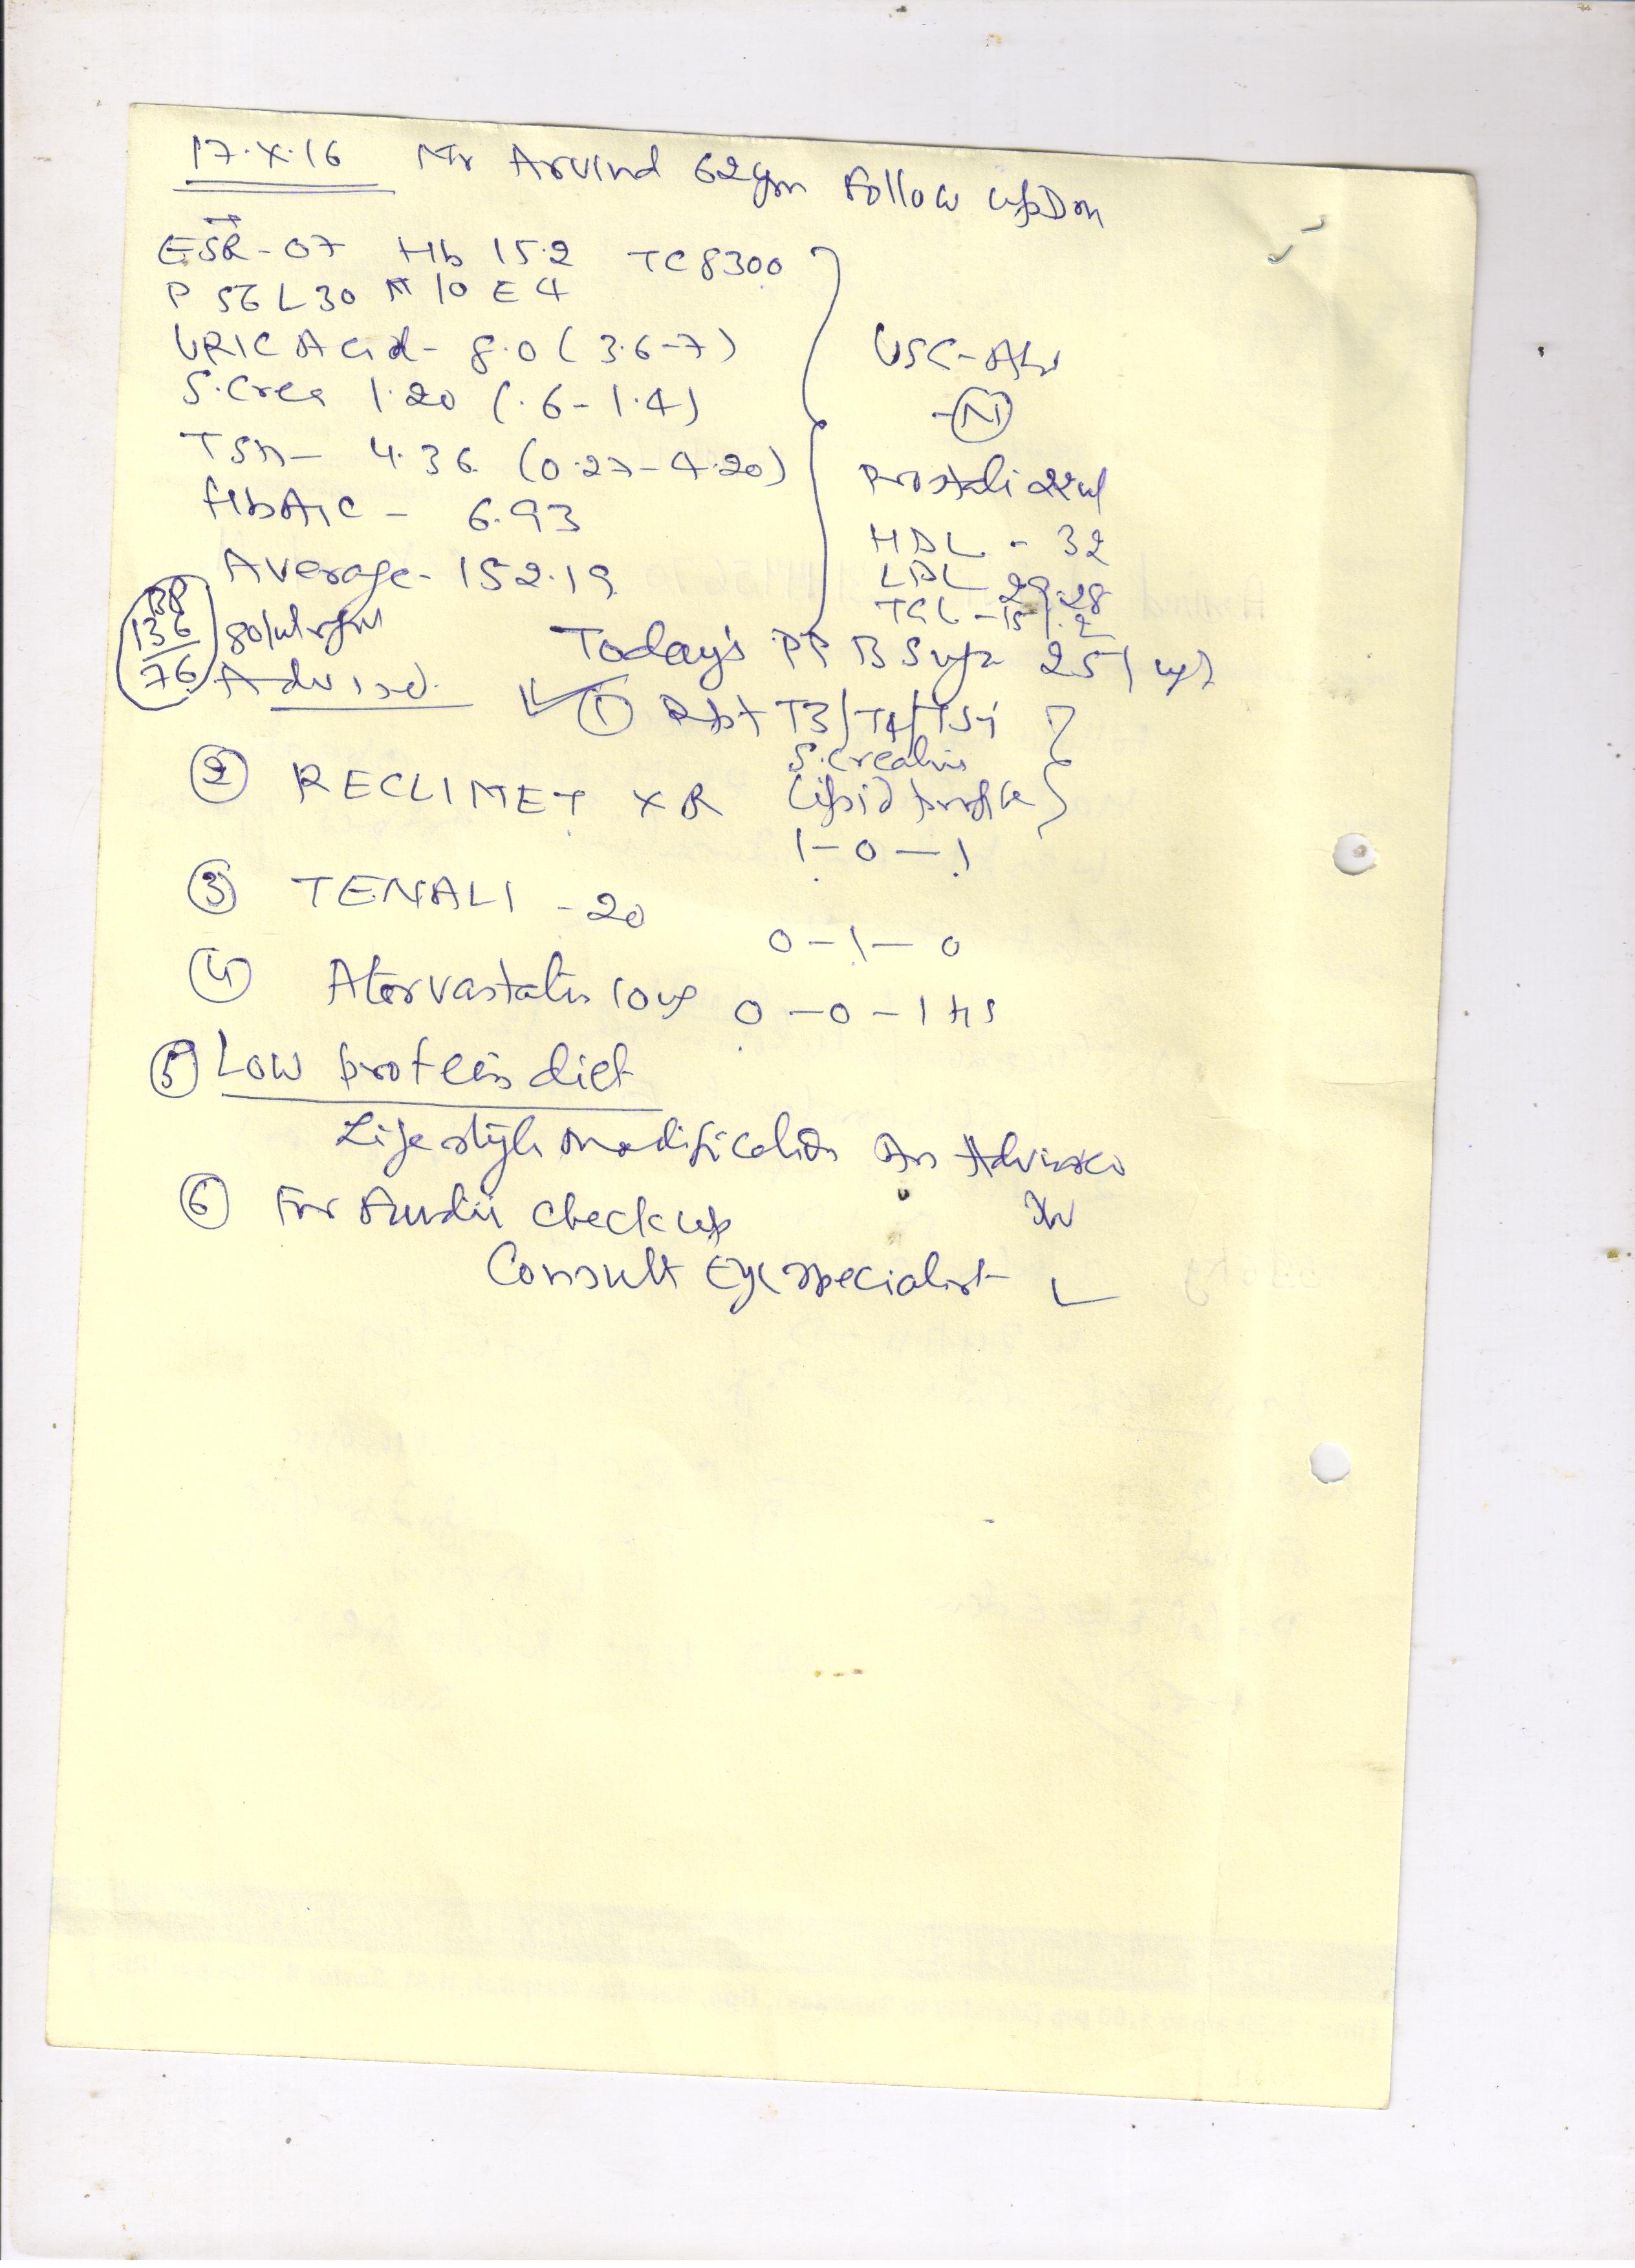 17.X.16 Mr Arvind 62yrs Follow up Dm
ESR - 07 Hb 15.2 TC 8300
P 56 L 30 M 10 E 4
URIC Acid - 8.0 (3.6-7)
S.Crea 1.20 (.6-1.4)
TSH - 4.36 (0.27-4.20)
HbA1C - 6.93
Average - 152.19
USG-Abd
- N
Prostate 22
HDL - 32
LDL 29.28
BP
136
76
80/
Today's PP B Sugar 251
Advised.
① Rpt T3/T4/TSH
S.creatin
Lipid profile
② RECLIMET XR
1-0-1
③ TENALI - 20
0-1-0
④ Atorvastatin 10mg 0-0-1 HS
⑤ Low protein diet
Life style modification As Advised
⑥ For Fundus check up
Consult Eye specialist